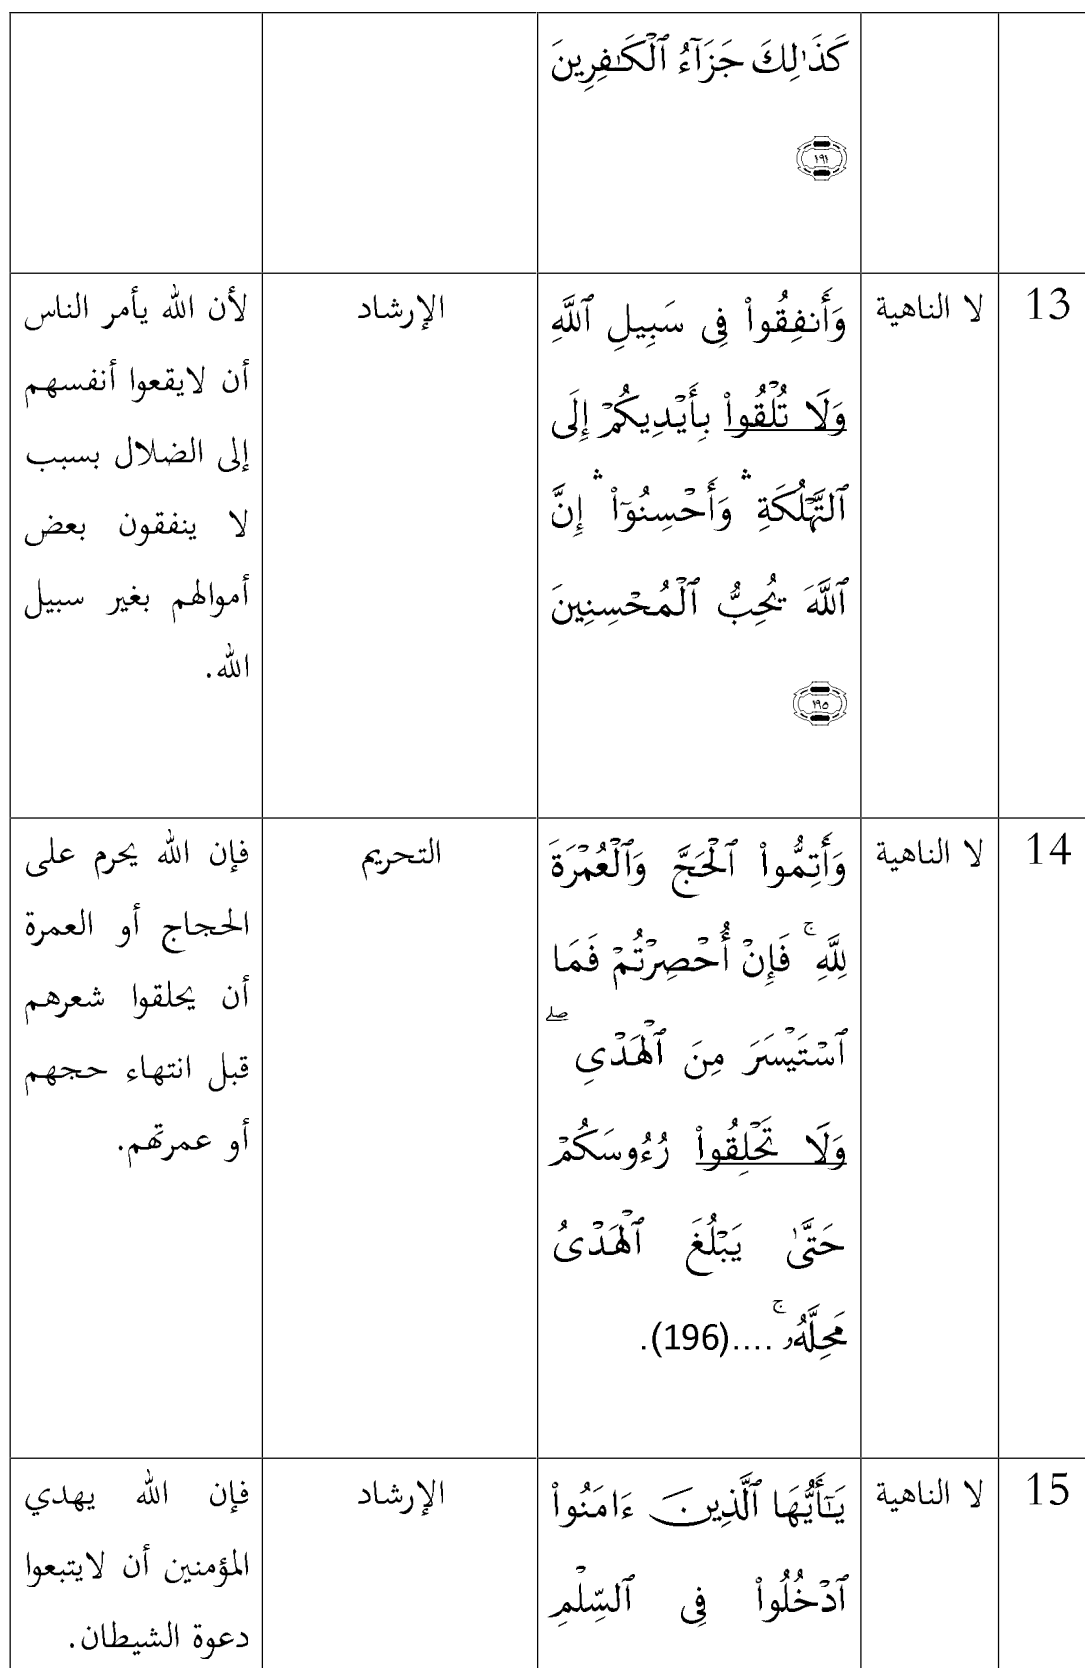 كَذَٰلِكَ جَزَآءُ ٱلْكَٰفِرِينَ
١٩١
13
لا الناهية
وَأَنفِقُوا۟ فِى سَبِيلِ ٱللَّهِ
وَلَا تُلْقُوا۟ بِأَيْدِيكُمْ إِلَى
ٱلتَّهْلُكَةِ ۛ وَأَحْسِنُوٓا۟ ۛ إِنَّ
ٱللَّهَ يُحِبُّ ٱلْمُحْسِنِينَ
١٩٥
الإرشاد
لأن الله يأمر الناس
أن لايقعوا أنفسهم
إلى الضلال بسبب
لا ينفقون بعض
أموالهم بغير سبيل
الله.
14
لا الناهية
وَأَتِمُّوا۟ ٱلْحَجَّ وَٱلْعُمْرَةَ
لِلَّهِ ۚ فَإِنْ أُحْصِرْتُمْ فَمَا
ٱسْتَيْسَرَ مِنَ ٱلْهَدْىِ ۖ
وَلَا تَحْلِقُوا۟ رُءُوسَكُمْ
حَتَّىٰ يَبْلُغَ ٱلْهَدْىُ
مَحِلَّهُۥ ۚ ....(196).
التحريم
فإن الله يحرم على
الحجاج أو العمرة
أن يحلقوا شعرهم
قبل انتهاء حجهم
أو عمرتهم.
15
لا الناهية
يَٰٓأَيُّهَا ٱلَّذِينَ ءَامَنُوا۟
ٱدْخُلُوا۟ فِى ٱلسِّلْمِ
الإرشاد
فإن الله يهدي
المؤمنين أن لايتبعوا
دعوة الشيطان.